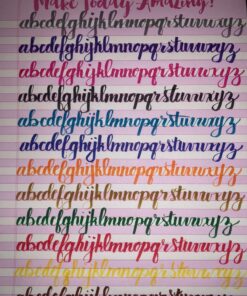 Make Today Amazing!
abcdefghijklmnopqrstuvwxyz
abcdefghijklmnopqrstuvwxyz
abcdefghijklmnopqrstuvwxyz
abcdefghijklmnopqrstuvwxyz
abcdefghijklmnopqrstuvwxyz
abcdefghijklmnopqrstuvwxyz
abcdefghijklmnopqrstuvwxyz
abcdefghijklmnopqrstuvwxyz
abcdefghijklmnopqrstuvwxyz
abcdefghijklmnopqrstuvwxyz
abcdefghijklmnopqrstuvwxyz